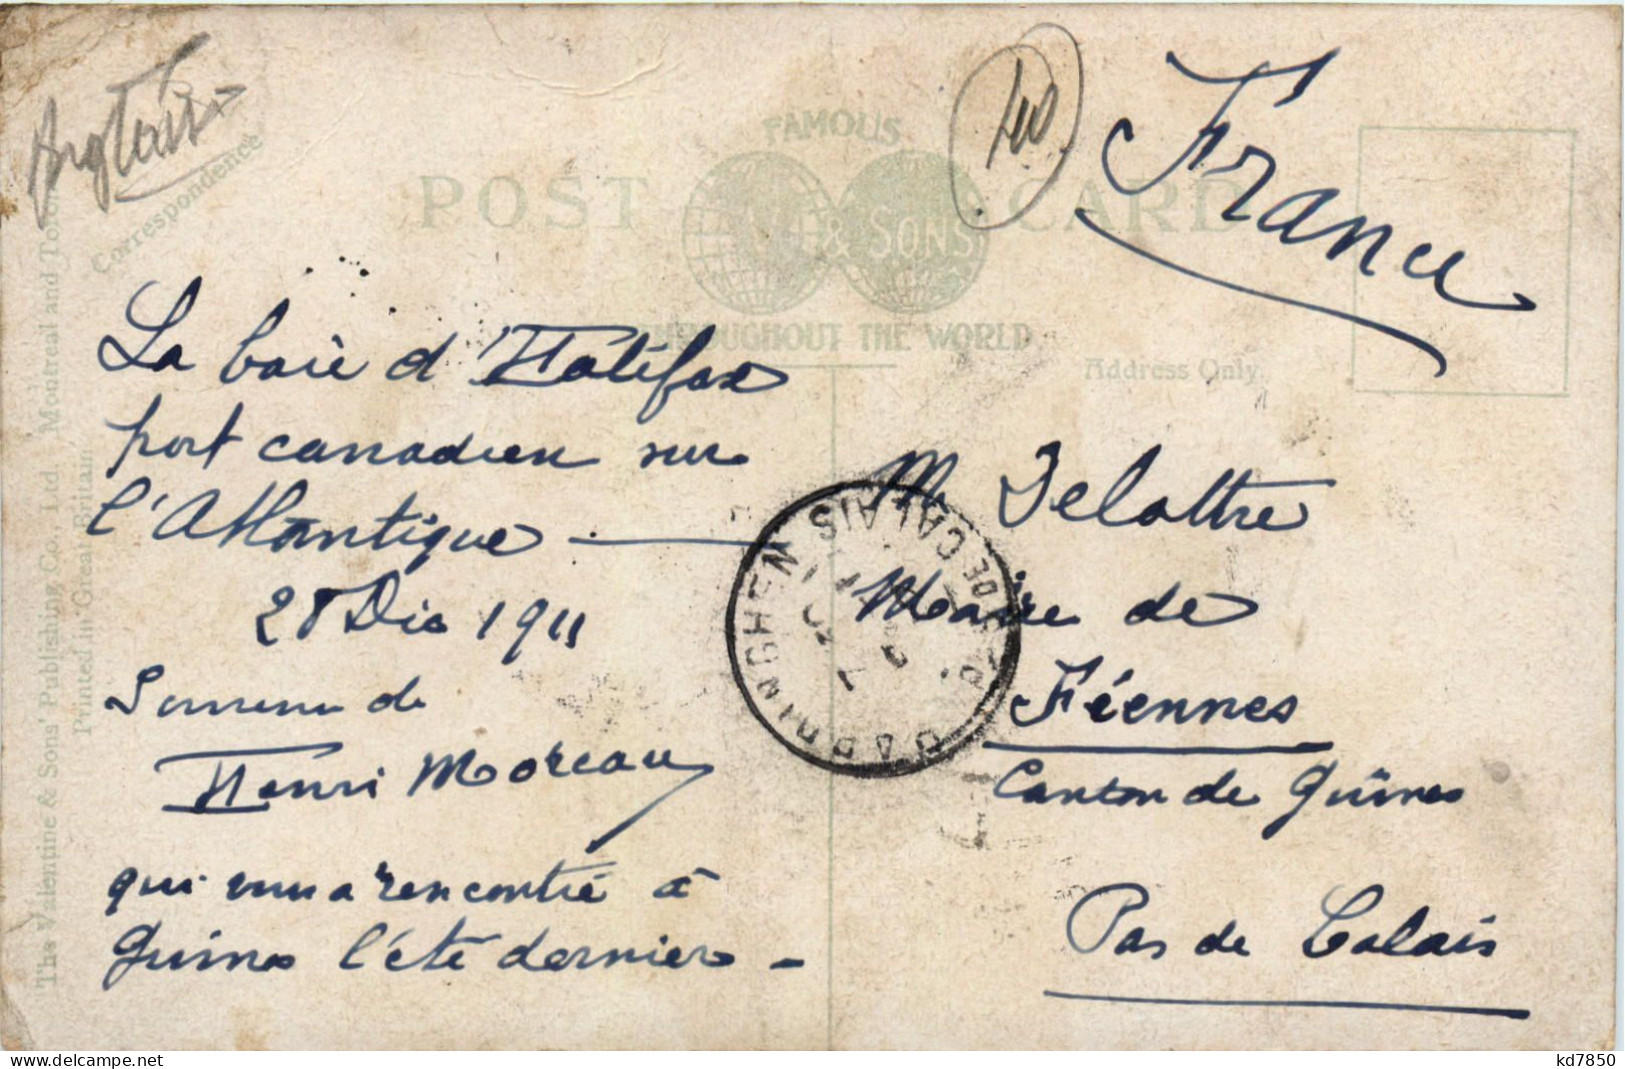 Correspondence
FAMOUS
POST CARD
& SONS
THROUGHOUT THE WORLD
Address Only.
France
La baie d'Halifax
port canadien sur
l'Atlantique —
28 Déc 1911
Souvenir de
Henri Moreau
qui vous a rencontré à
Guines l'été dernier —
M. Delattre
Maire de
Féennes
Canton de Guînes
Pas de Calais
PAS DE CALAIS
The Valentine & Sons' Publishing Co., Ltd. Montreal and
Printed in Great Britain
kd7850